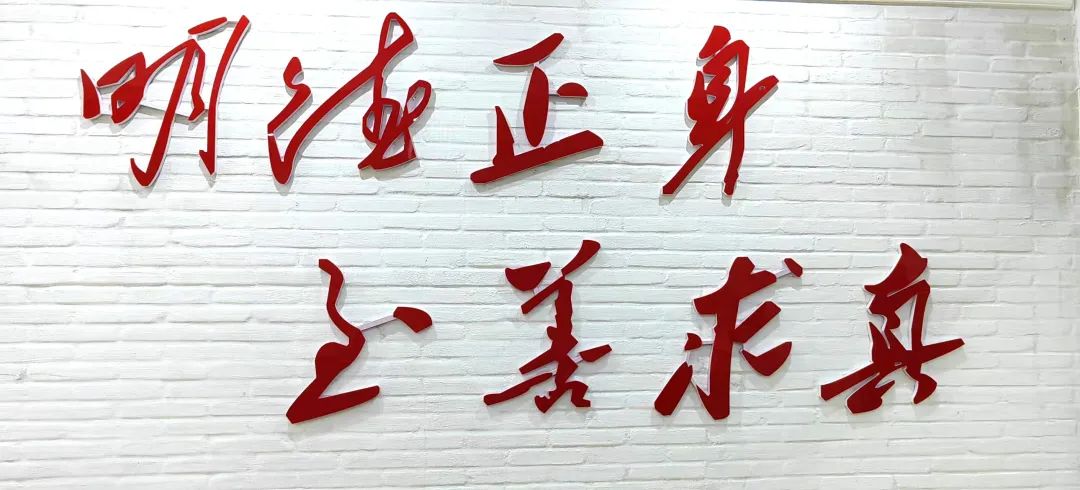 明德正身
至善求真